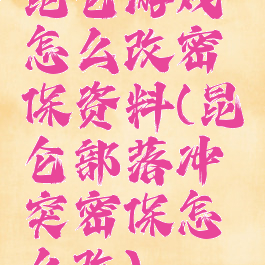 昆仑游戏
怎么改密
保资料(昆
仑部落冲
突密保怎
么改)